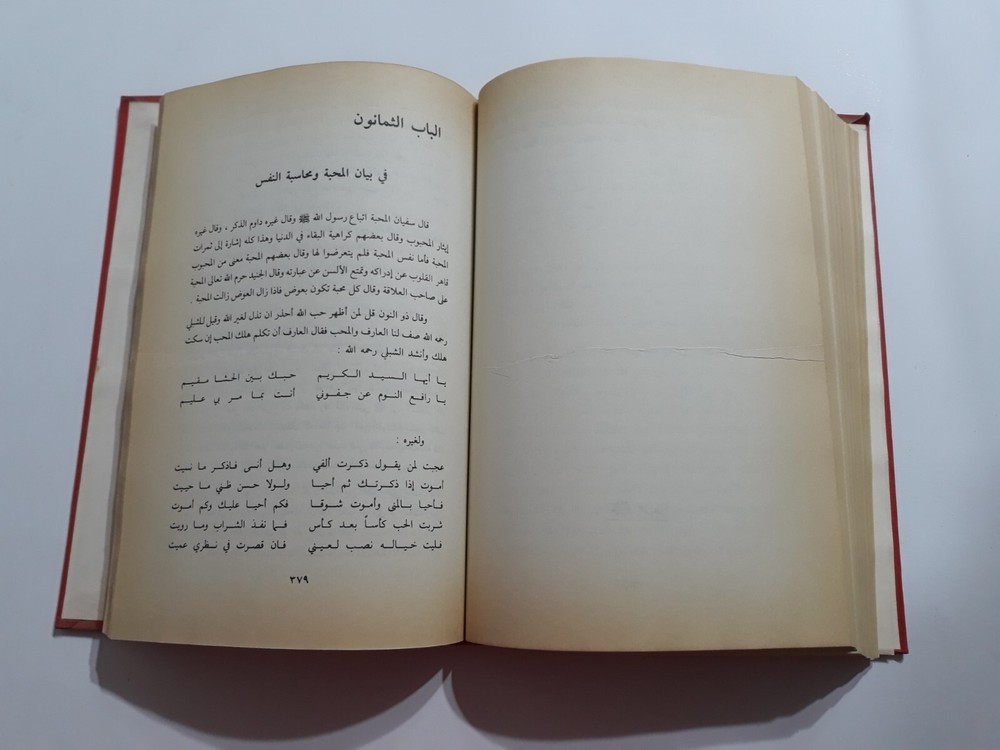 الباب الثمانون
في بيان المحبة ومحاسبة النفس
قال سفيان المحبة اتباع رسول الله ﷺ وقال غيره داوم الذكر ، وقال غيره
إيثار المحبوب وقال بعضهم كراهية البقاء في الدنيا وهذا كله إشارة إلى ثمرات
المحبة فأما نفس المحبة فلم يتعرضوا لها وقال بعضهم المحبة معنى من المحبوب
قاهر القلوب عن إدراكه وتمتع الألسن عن عبارته وقال الجنيد حرم الله تعالى المحبة
على صاحب العلاقة وقال كل محبة تكون بعوض فاذا زال العوض زالت المحبة .
وقال ذو النون قل لمن أظهر حب الله أحذر ان تذل لغير الله وقيل للشبلي
رحمه الله صف لنا العارف والمحب فقال العارف أن تكلم هلك المحب إن سكت
هلك وأنشد الشبلي رحمه الله :
يا أيها السيد الكريم حبك بين الحشا مقيم
يا رافع النوم عن جفوني أنت بما مر بي عليم
ولغيره :
عجبت لمن يقول ذكرت ألفي وهل أنسى فاذكر ما نسيت
أموت إذا ذكرتك ثم أحيا ولولا حسن ظني ما حييت
فأحيا بالمنى وأموت شوقا فكم أحيا عليك وكم أموت
شربت الحب كأساً بعد كأس فما نفذ الشراب وما رويت
فليت خياله نصب لعيني فان قصرت في نظري عميت
٣٧٩